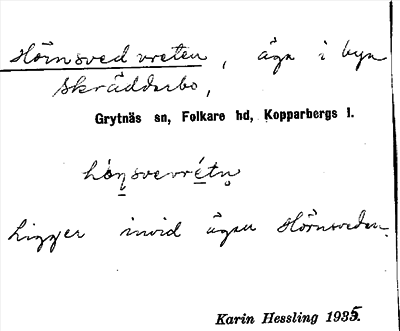 Hörnsvedvreten, äga i byn
Skrädderbo,
Grytnäs sn, Folkare hd, Kopparbergs l.
hö̀ṇsvevrétṇ
Ligger invid ägan Hörnsveden.
Karin Hessling 1935.